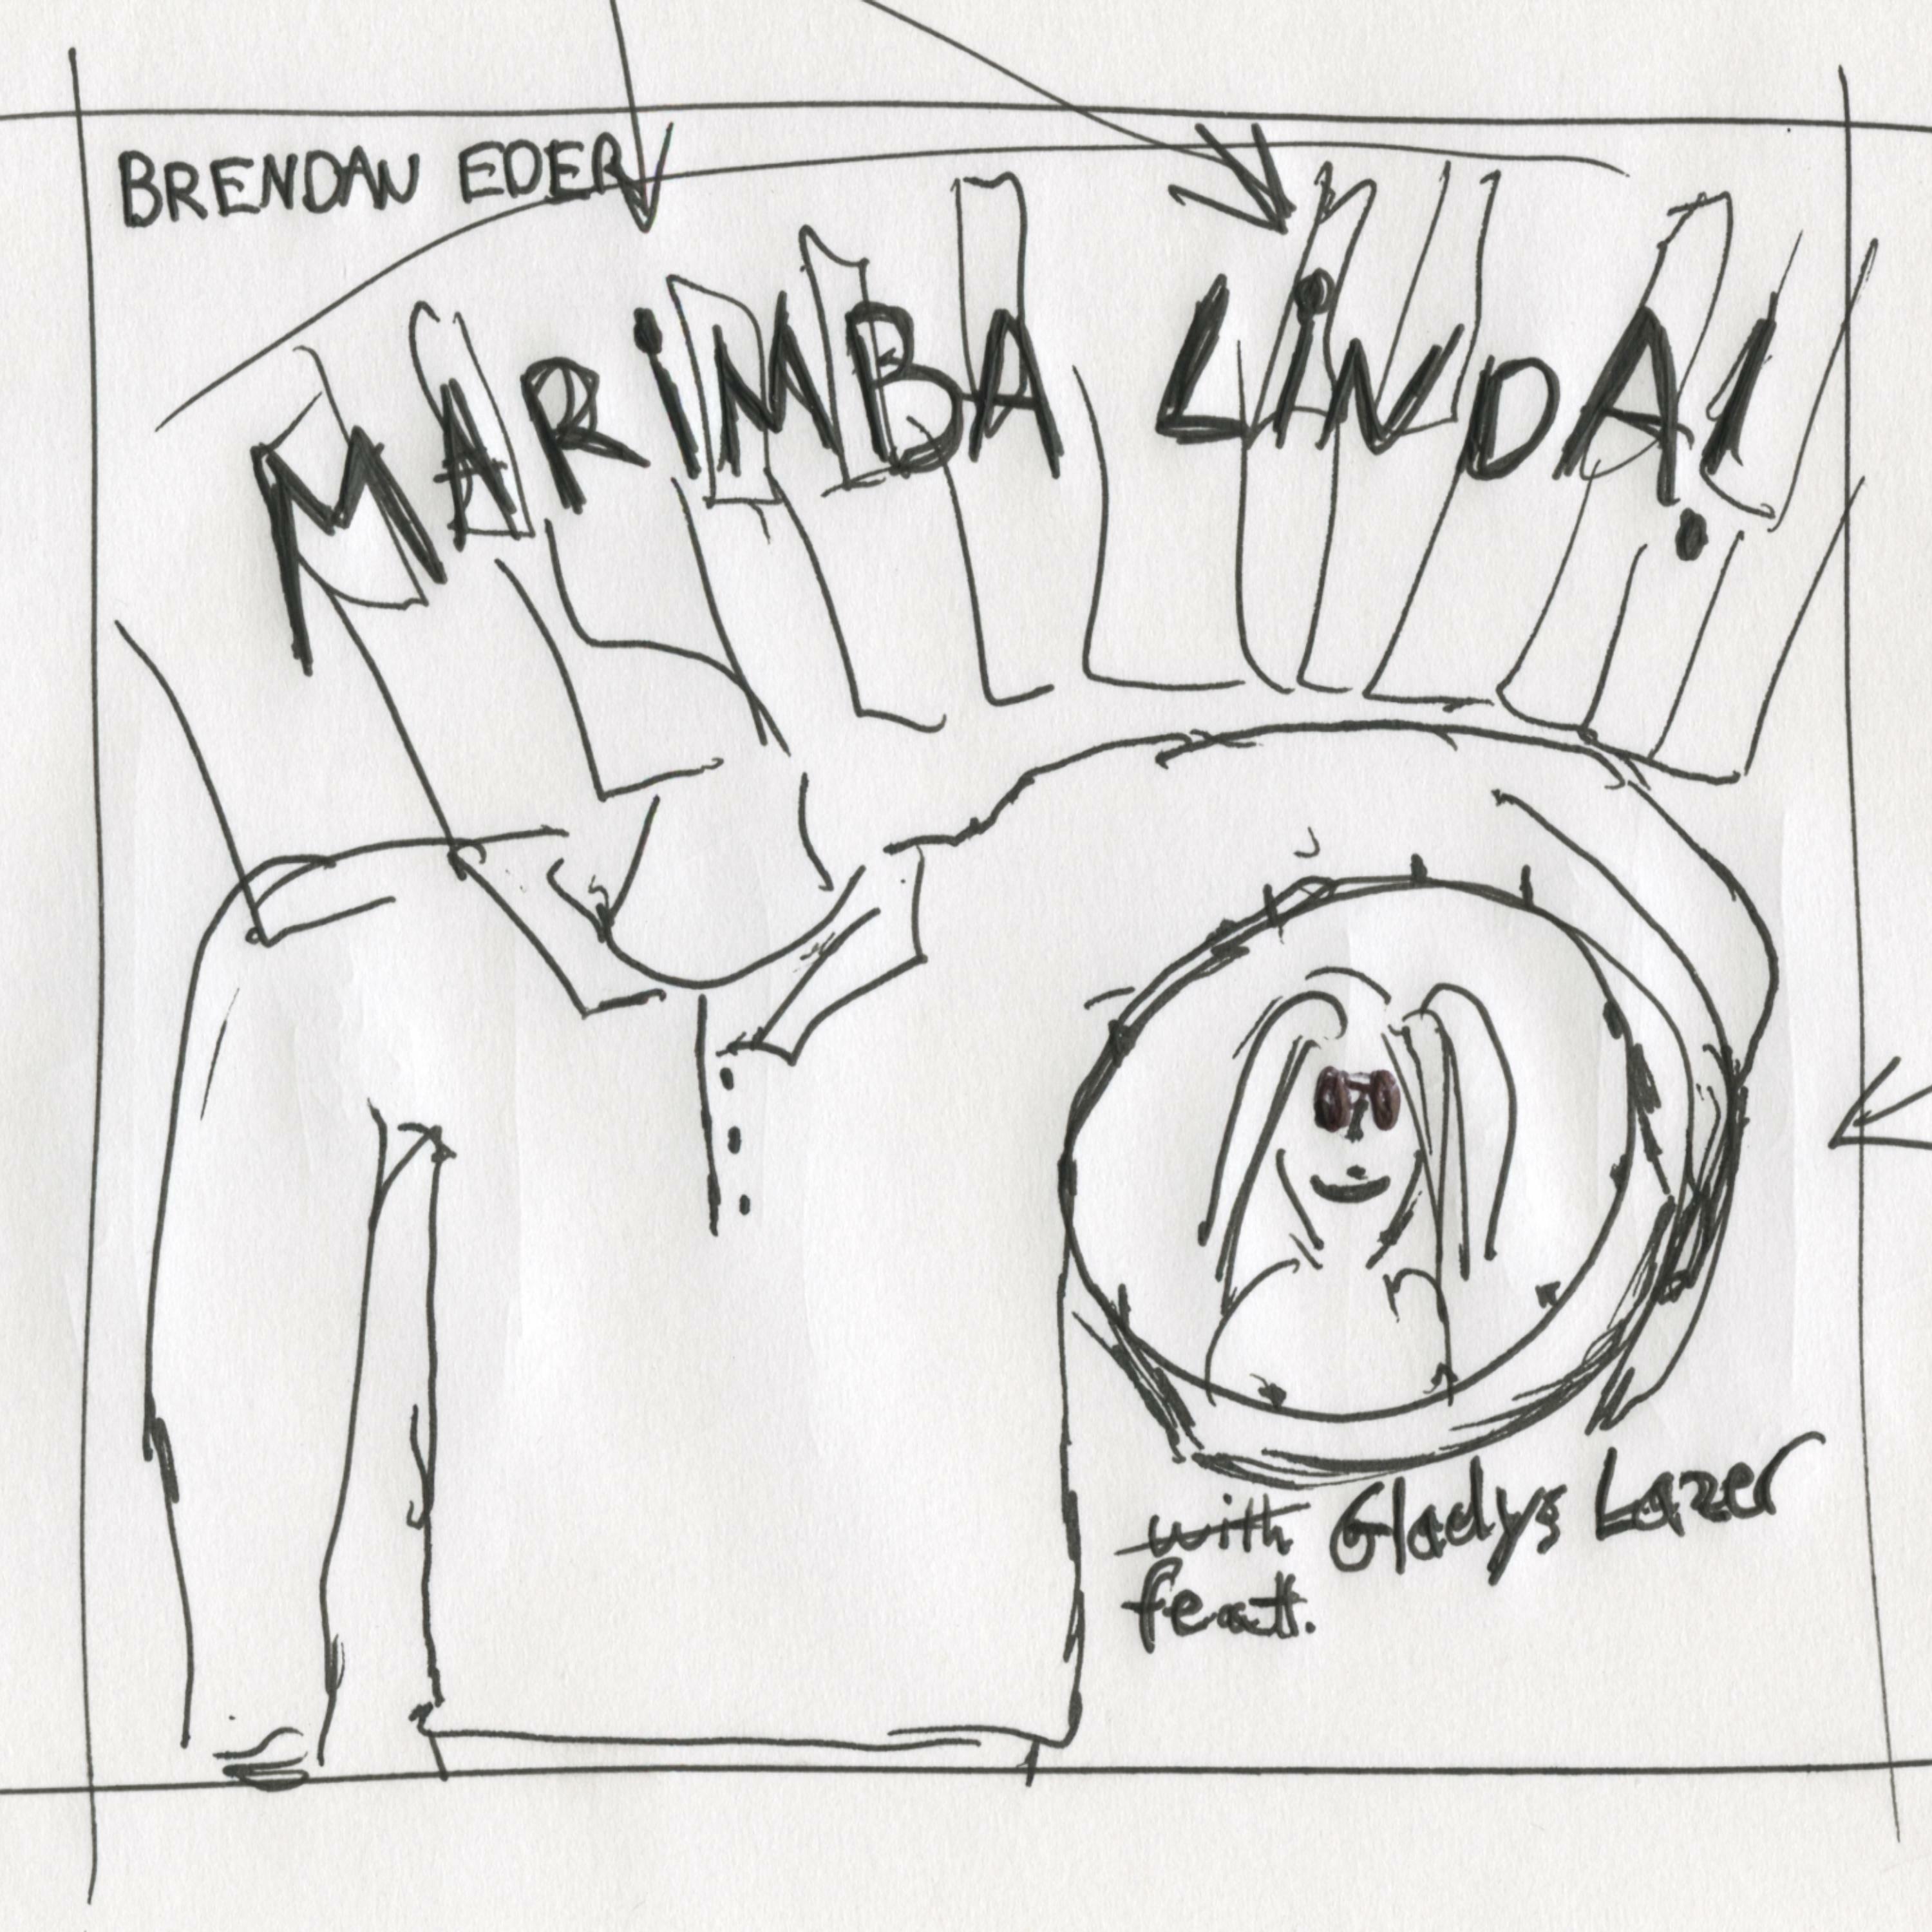 BRENDAN EDER
MARiMBA LiNDA!
with Gladys Lazer
feat.